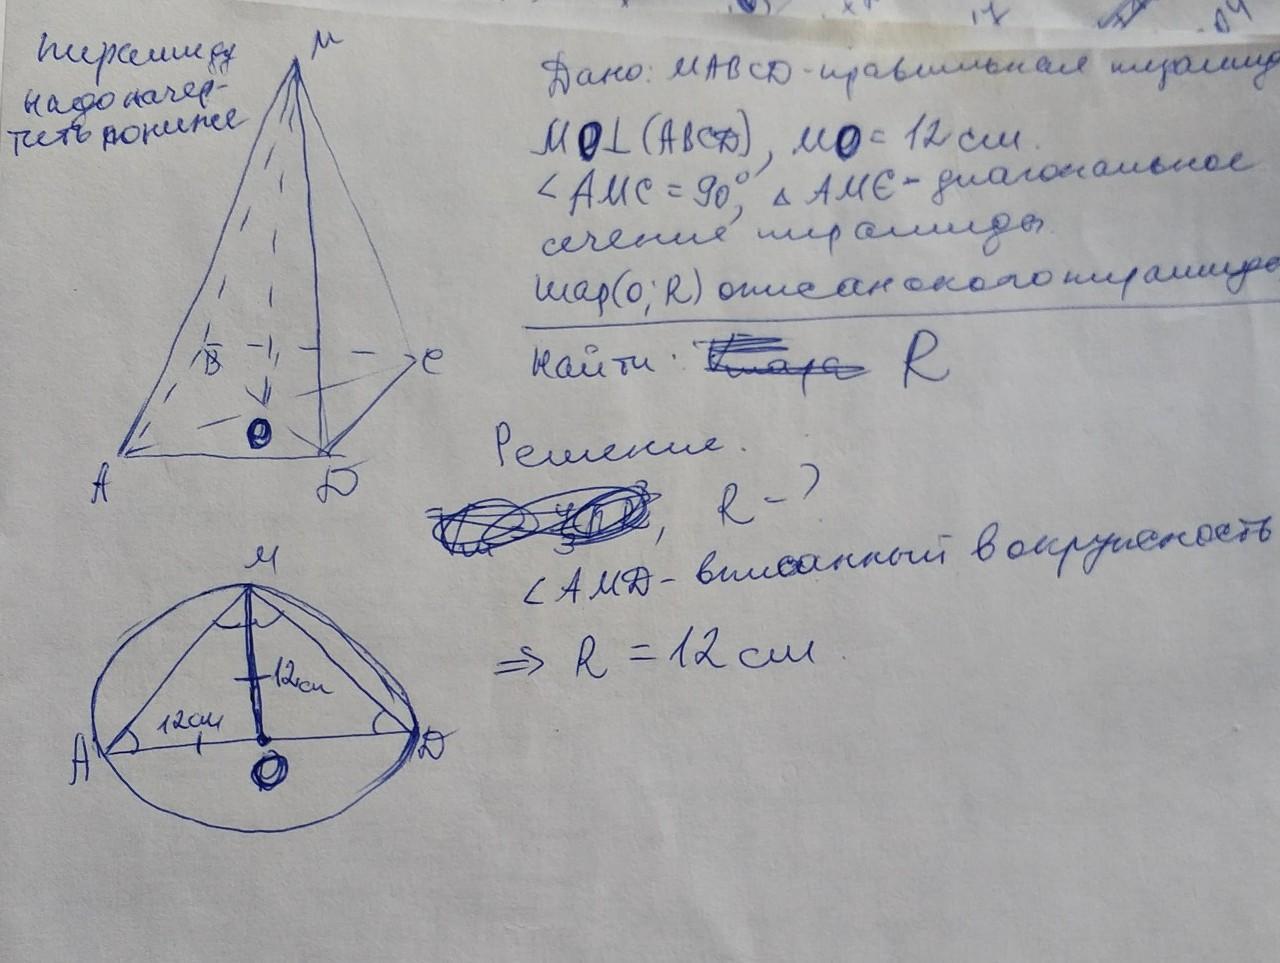 Пирамиду
надо начер-
тить пониже
M
B
C
O
A
D
Дано: MABCD - правильная пирамида
MO⊥(ABCD), MO = 12 см.
∠AMC = 90°, △AMC - диагональное
сечение пирамиды.
шар(O; R) описан около пирамиды
Найти: R
Решение.
R - ?
∠AMD - вписанный в окружность
⇒ R = 12 см.
M
12см
12см
A
O
D